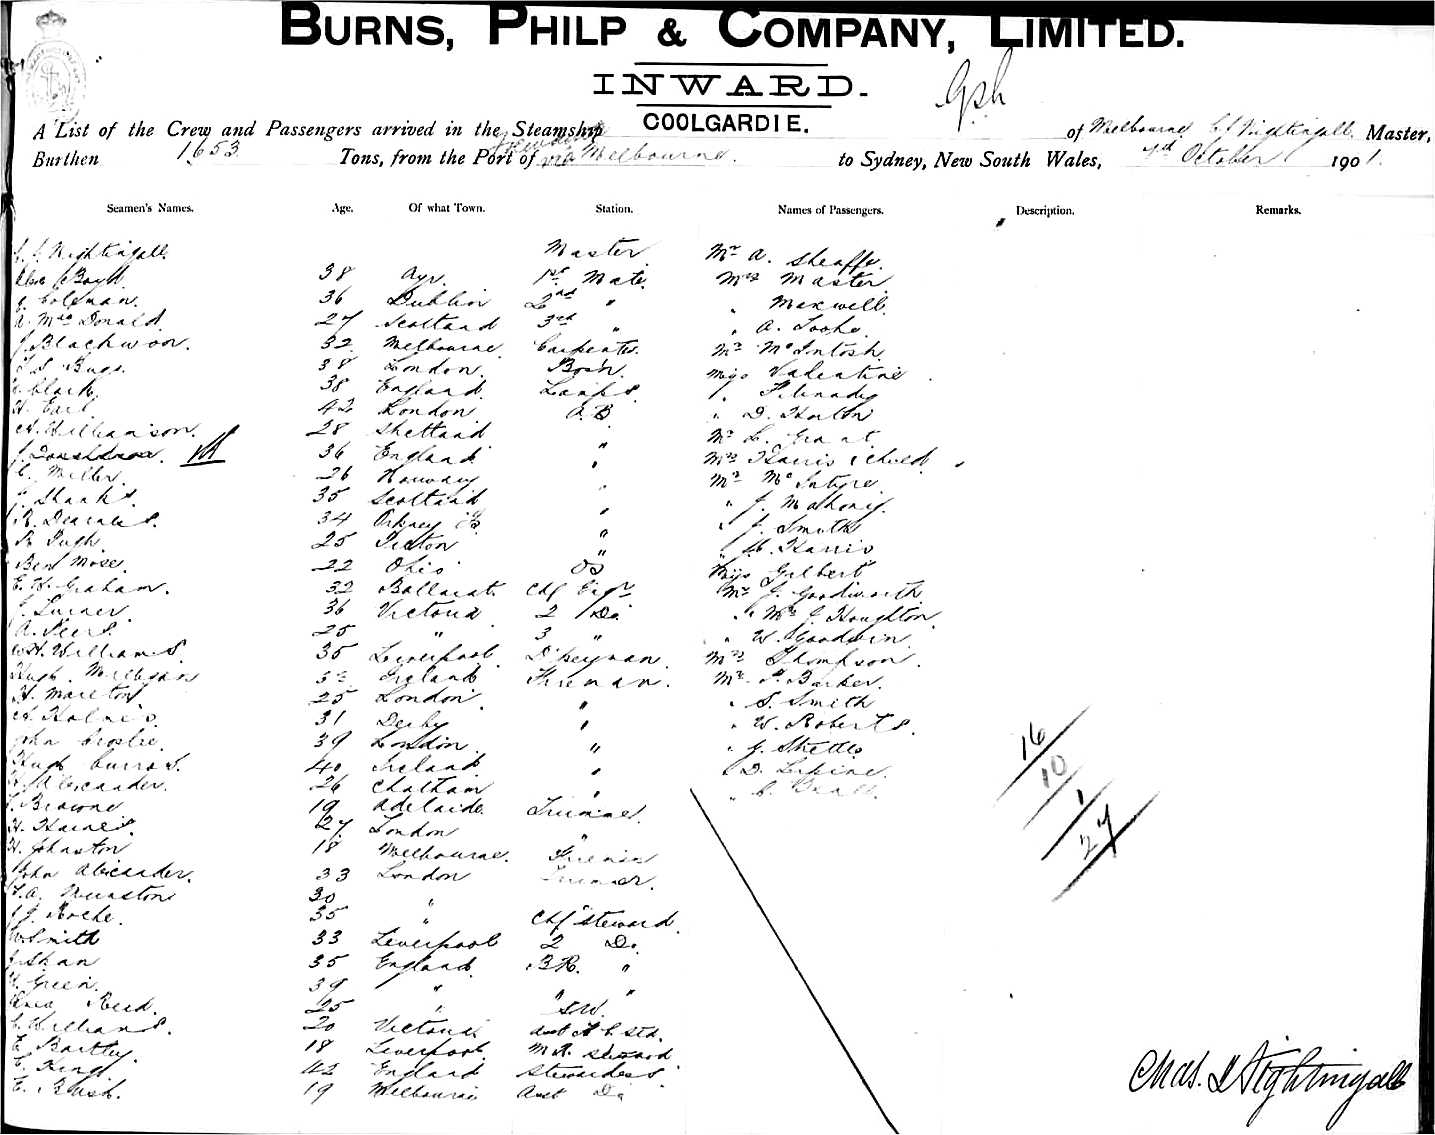 BURNS, PHILP & COMPANY, LIMITED.
INWARD.
COOLGARDIE.
A List of the Crew and Passengers arrived in the Steamship of Melbourne C J Nightingall Master,
Burthen 1653 Tons, from the Port of via Melbourne. to Sydney, New South Wales, October 1901.
Seamen's Names. Age. Of what Town. Station. Names of Passengers. Description. Remarks.
C. J. Nightingall Master Mr A. Sheaffe
Boyd. 38 Ayr. 1st Mate. Mrs Master
Coleman. 36 Dublin 2nd " " Maxwell
A. MacDonald. 27 Scotland 3rd " " A. Tooke.
J. Blackwood. 32 Melbourne. Carpenter. Mr McIntosh
38 London. Bosn. Miss Valentine
Clark. 38 England. Lamps.
H. Earl. 42 London A.B. " D. Horton
A. Williamson. 28 Shetland " Mr L. Grant
J. 36 England " Mrs Harris & child
C. Miller. 26 Norway " Mr McIntyre
J. Shanks. 35 Scotland " " J. Mahony.
R. 34 Orkney Is " " J. Smith
R. Pugh 25 Picton " " H. Harris
Ben Mose. 22 Ohio OS Miss Gilbert
E. H. Graham. 32 Ballarat. Chf Engr. Mr J. Goodworth
J. Turner. 36 Victoria 2 Do. " Mr J. Houghton
A. Peers. 25 " 3 " " W. Goodwin
W. H. Williams. 35 Liverpool. D'keyman. Mrs Thompson.
Hugh Milligan Ireland Fireman. Mr P. Barker.
H. 25 London. " " S. Smith
A. Holmes. 31 Derby " " W. Roberts.
John Croslie. 39 London. " " G.
Hugh Burros. 40 Ireland " " D.
H. Alexander. 26 Chatham " " C.
J. Browne 19 Adelaide Trimmer.
H. Haines. 27 London "
H. Johnston 18 Melbourne. Fireman
John Alexander. 33 London Trimmer.
T. A. 30 "
J. Roche. 35 " Chf Steward.
W. Smith 33 Liverpool 2 Do.
J. Shan 35 England. B.R. "
H. Green. 39 " " "
Reid. 25 " S.W.
C. Williams. 20 Victoria Asst
E. Bartley. 18 Liverpool. M.R. Steward
E. King 42 England Stewardess
E. Bush. 19 Melbourne Asst Do
16
10
1
27
Chas. J Nightingall